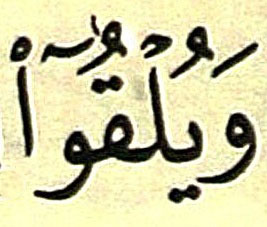 وَيُلْقُوٓا۟